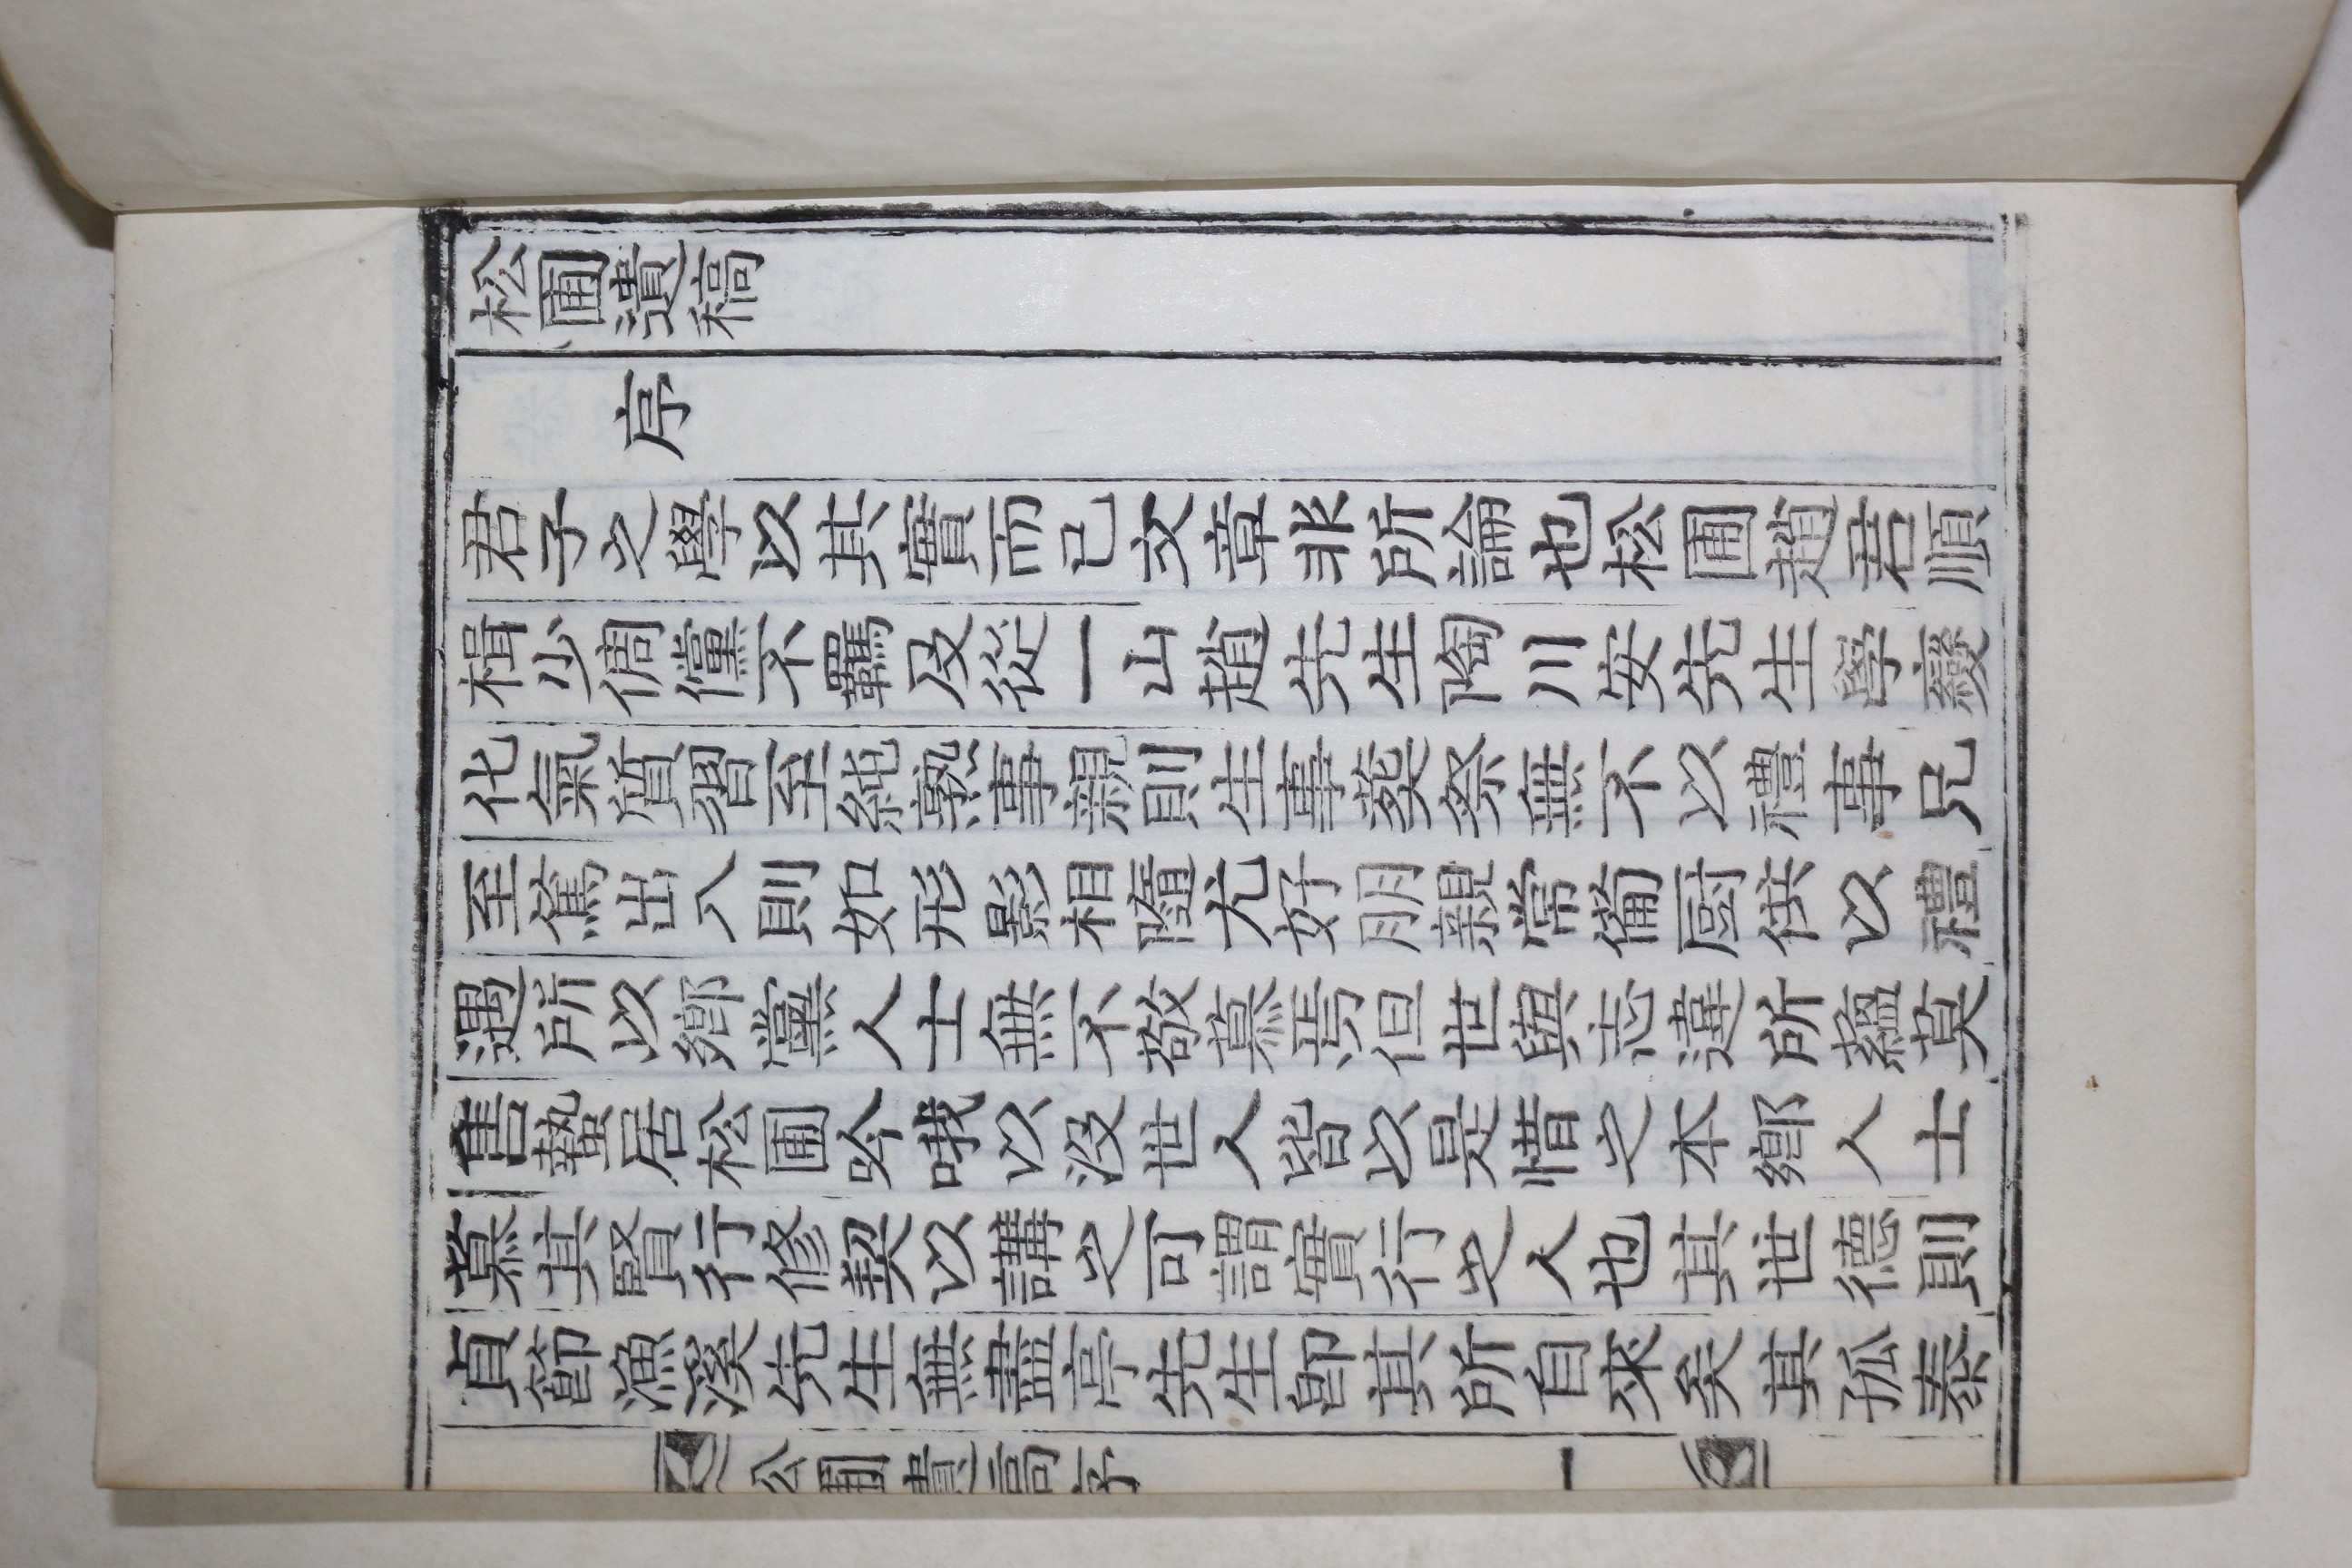 松圃遺稿
序
君子之學以其實而已文章非所論也松圃趙君順
楫少倜儻不羈及從一山趙先生陶川安先生學變
化氣質習至純熟事親則生事葬祭無不以禮事兄
至篤出入則如形影相隨尤好朋親常備厨供以禮
遇所以鄉黨人士無不敬慕焉但世與志違所蘊莫
售蟄居松圃吟哦以沒世人皆以是惜之本鄉人士
慕其賢行修契以講之可謂實行之人也其世德則
貞節漁溪先生無盡亭先生卽其所自來矣其孤泰
松圃遺稿序
一